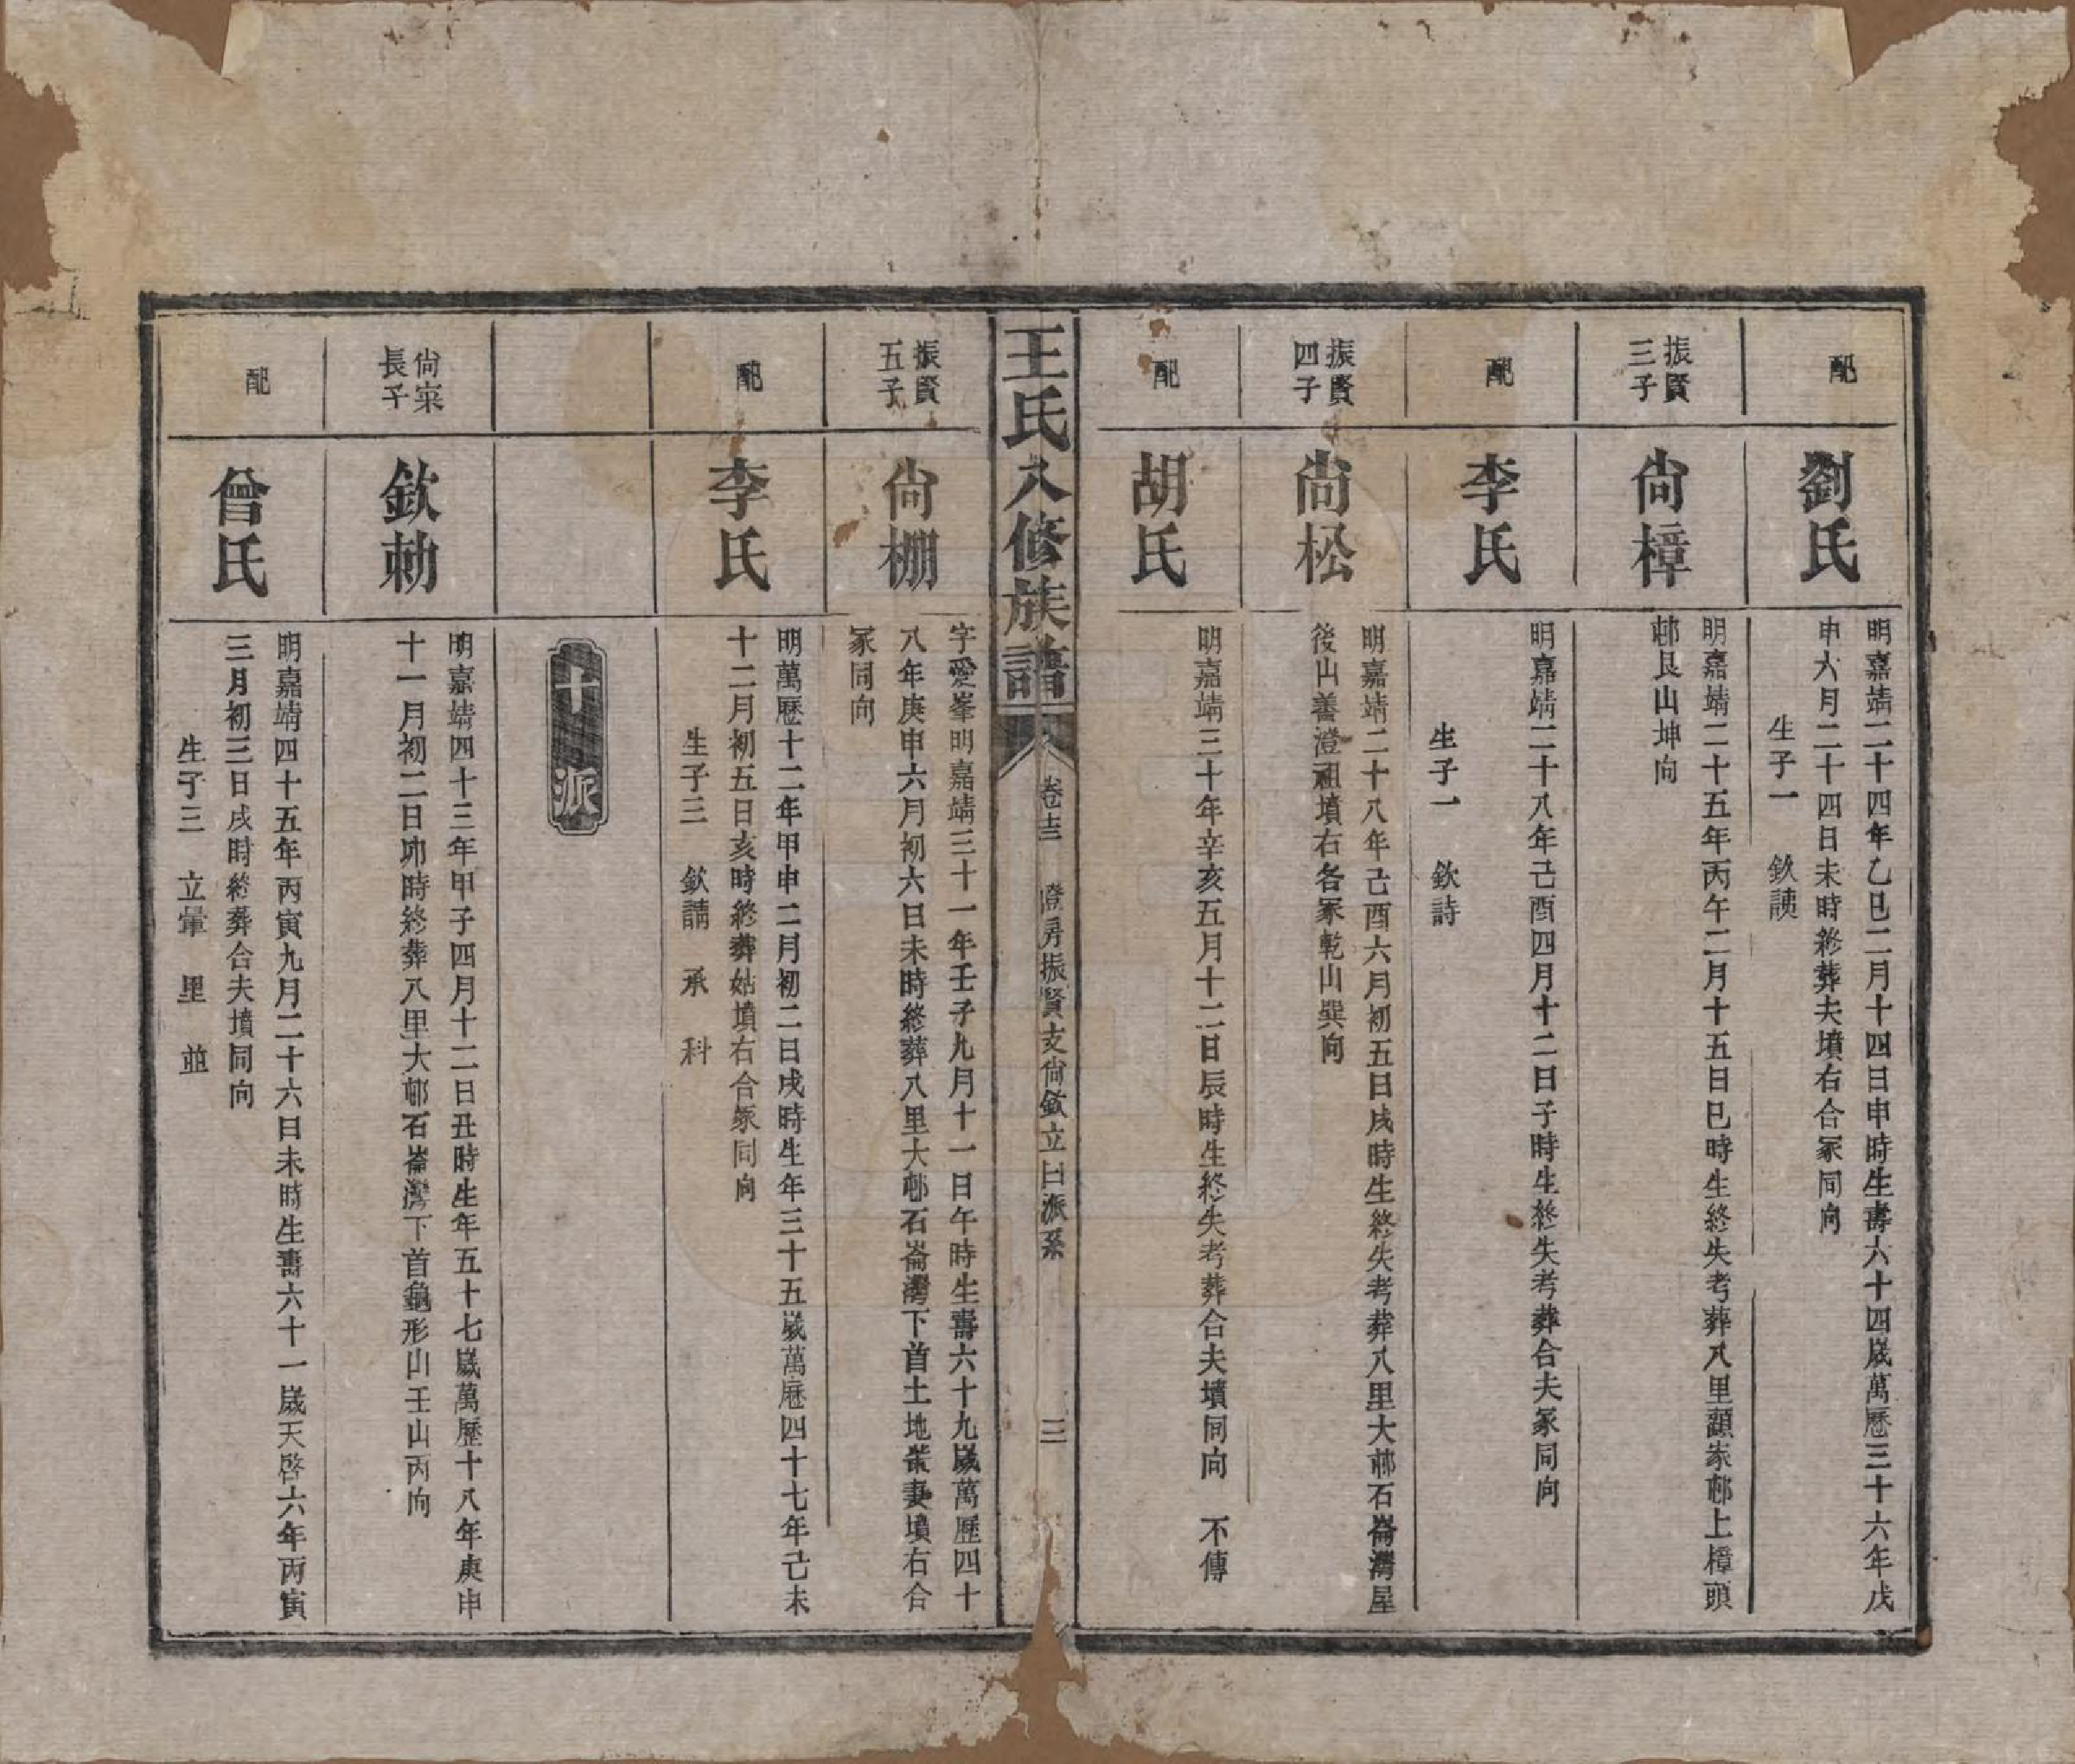 配
劉氏
明嘉靖二十四年乙巳二月十四日申時生壽六十四歲萬曆三十六年戊
申六月二十四日未時終葬夫墳右合冢同向
生子一　欽謨
振賢
三子
尙樟
明嘉靖二十五年丙午二月十五日巳時生終失考葬八里顏家邨上樟頭
邨艮山坤向
配
李氏
明嘉靖二十八年己酉四月十二日子時生終失考葬合夫冢同向
生子一　欽詩
振賢
四子
尙松
明嘉靖二十八年己酉六月初五日戌時生終失考葬八里大邨石崙灣屋
後山善澄祖墳右各冢乾山巽向
配
胡氏
明嘉靖三十年辛亥五月十二日辰時生終失考葬合夫墳同向　不傳
王氏八修族譜
卷十三　澄房振賢支尙欽立曰派系
三
振賢
五子
尙棚
字愛峯明嘉靖三十一年壬子九月十一日午時生壽六十九歲萬歷四十
八年庚申六月初六日未時終葬八里大邨石崙灣下首土地崇妻墳右合
冢同向
配
李氏
明萬歷十二年甲申二月初二日戌時生年三十五歲萬歷四十七年己未
十二月初五日亥時終葬姑墳右合冢同向
生子三　欽講　承　科
十派
尙寀
長子
欽勑
明嘉靖四十三年甲子四月十二日丑時生年五十七歲萬歷十八年庚申
十一月初二日卯時終葬八里大邨石崙灣下首龜形山壬山丙向
配
曾氏
明嘉靖四十五年丙寅九月二十六日未時生壽六十一歲天啓六年丙寅
三月初三日戌時終葬合夫墳同向
生子三　立暈　里　並